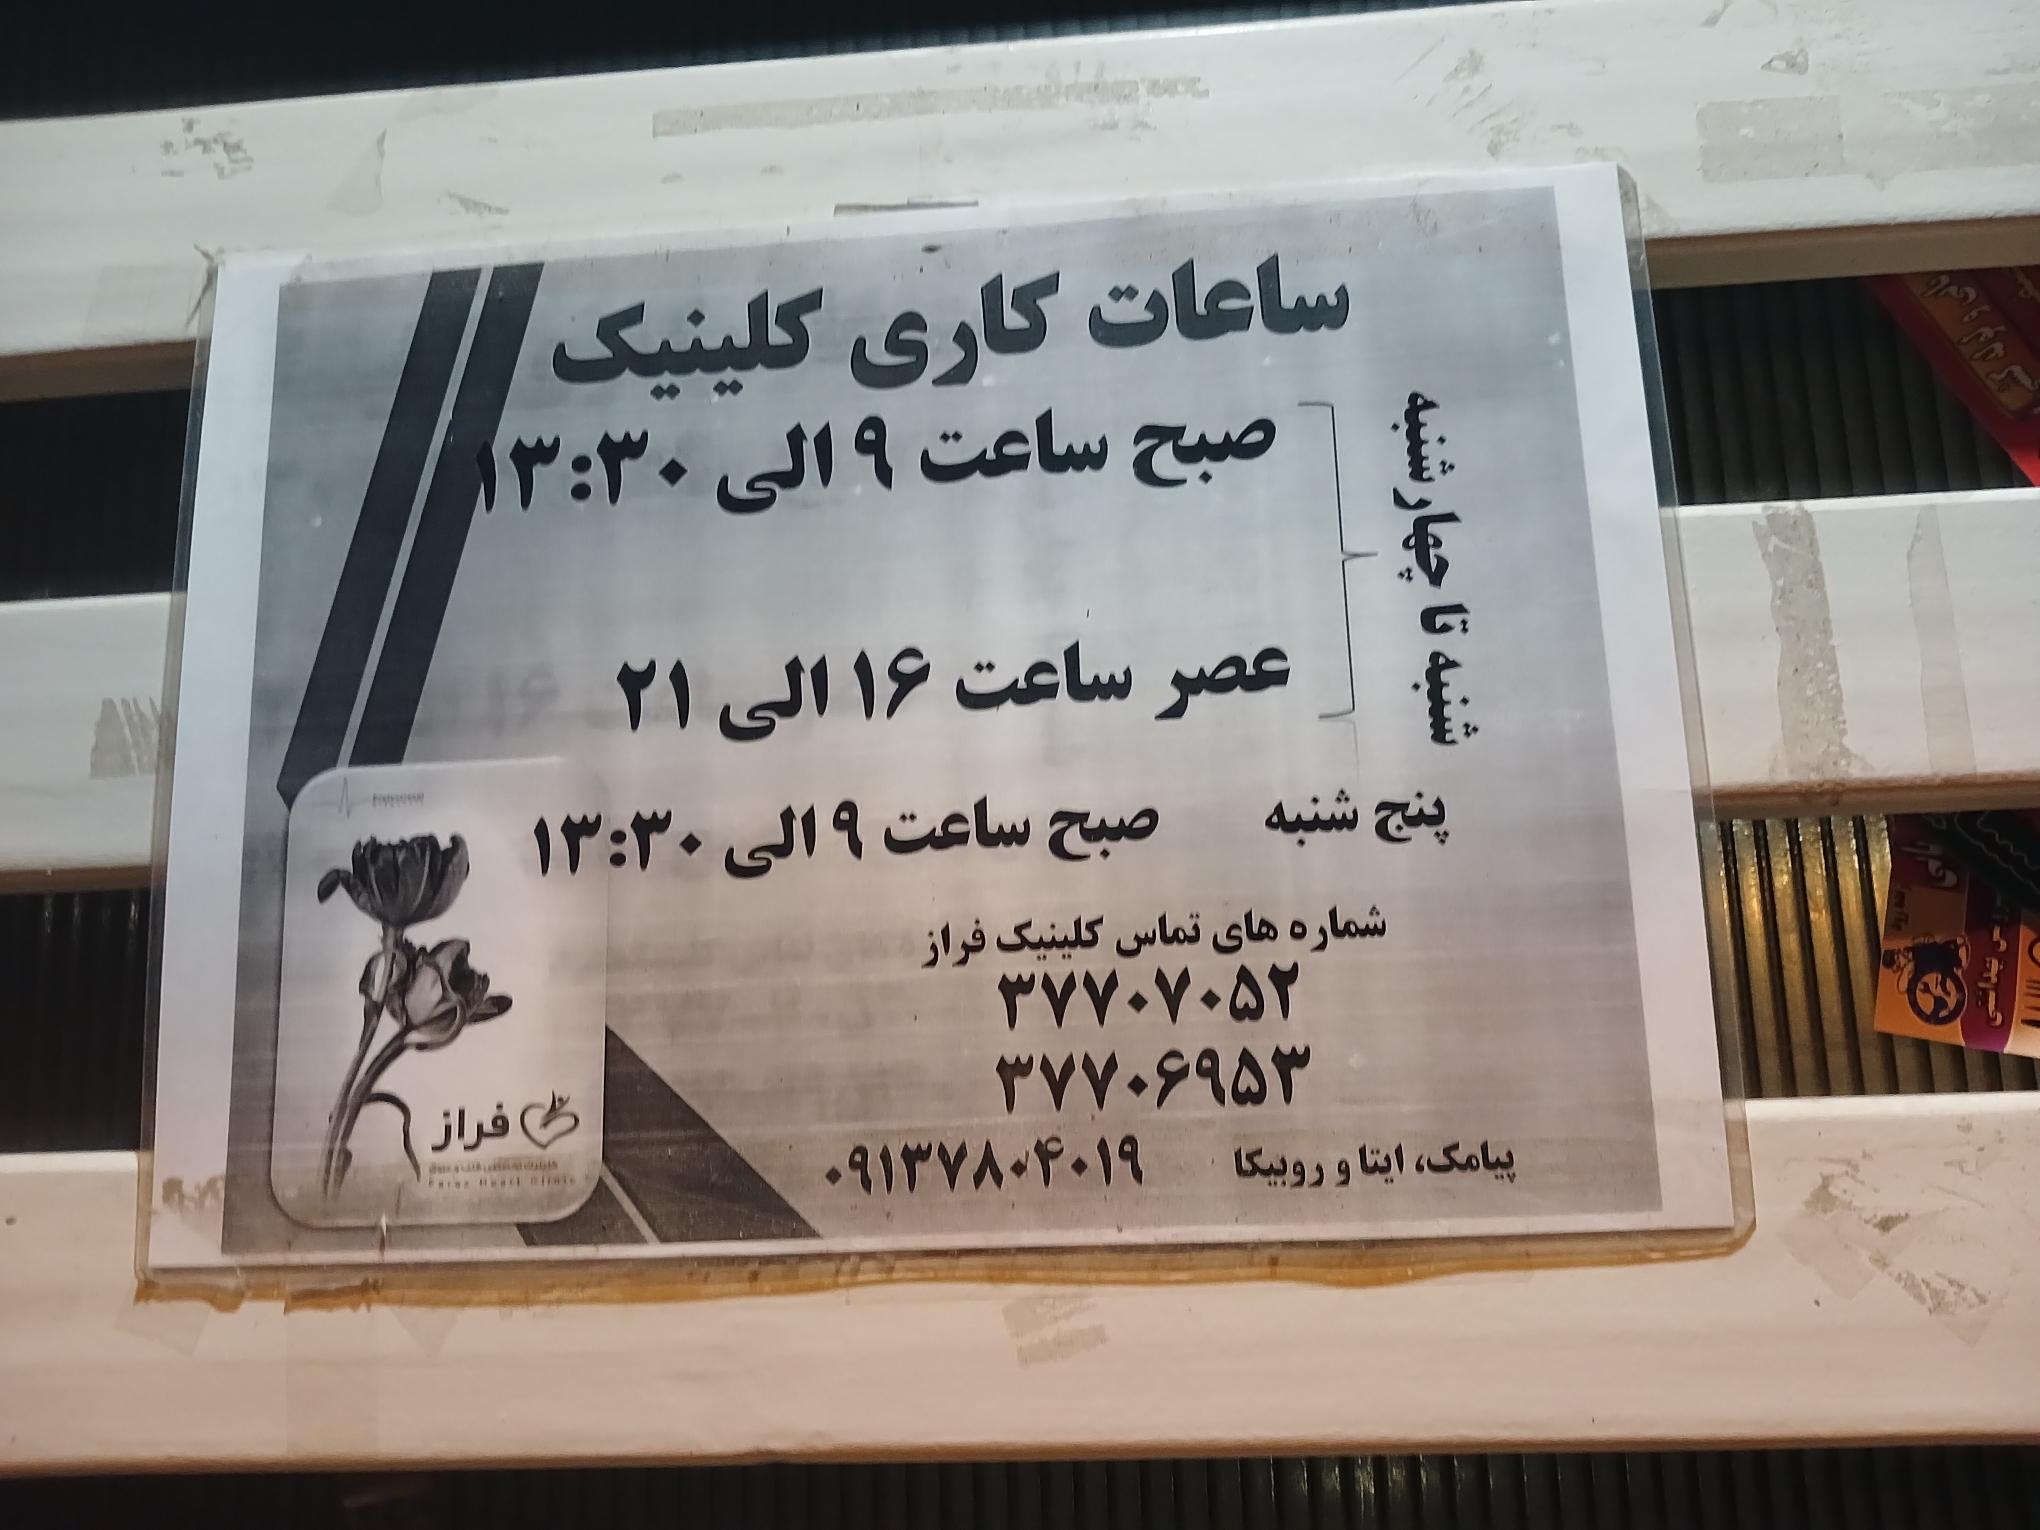 ساعات کاری کلینیک
شنبه تا چهارشنبه
صبح ساعت ۹ الی ۱۳:۳۰
عصر ساعت ۱۶ الی ۲۱
پنج شنبه صبح ساعت ۹ الی ۱۳:۳۰
شماره های تماس کلینیک فراز
۳۷۷۰۷۰۵۲
۳۷۷۰۶۹۵۳
پیامک، ایتا و روبیکا ۰۹۱۳۷۸۰۴۰۱۹
فراز
Faraz Heart Clinic